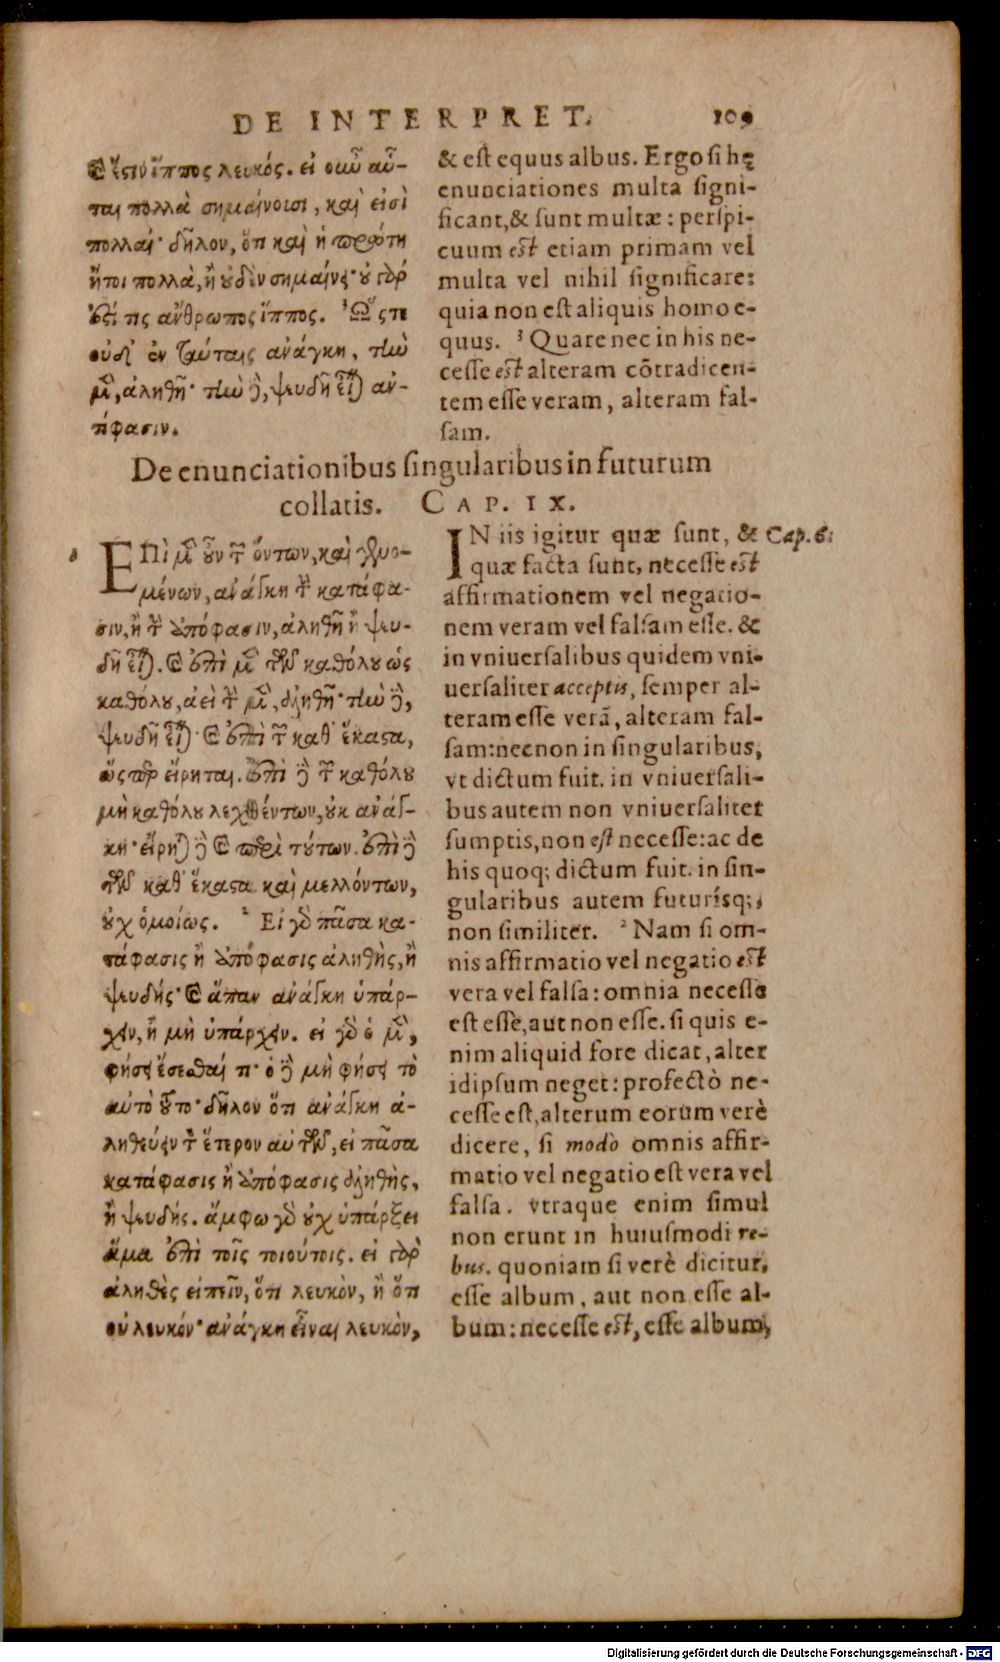 DE INTERPRET. 109
καὶ ἔστιν ἵππος λευκός. εἰ οὖν αὗ-
ται πολλὰ σημαίνουσι, καὶ εἰσὶ
πολλαί· δῆλον, ὅτι καὶ ἡ πρώτη
ἤτοι πολλὰ, ἢ οὐδὲν σημαίνει· οὐ γάρ
ἐστί τις ἄνθρωπος ἵππος. ³Ὥστε
οὐδ' ἐν ταύταις ἀνάγκη, τὴν
μὲν, ἀληθῆ· τὴν δὲ, ψευδῆ εἶναι ἀν-
τίφασιν.
& est equus albus. Ergo si hę
enunciationes multa signi-
ficant, & sunt multæ: perspi-
cuum est etiam primam vel
multa vel nihil significare:
quia non est aliquis homo e-
quus. ³ Quare nec in his ne-
cesse est alteram cōtradicen-
tem esse veram, alteram fal-
sam.
De enunciationibus singularibus in futurum
collatis. CAP. IX.
EΠὶ μὲν οὖν τῶν ὄντων, καὶ γενο-
μένων, ἀνάγκη τὴν κατάφα-
σιν, ἢ τὴν ἀπόφασιν, ἀληθῆ ἢ ψευ-
δῆ εἶναι. καὶ ἐπὶ μὲν τῶν καθόλου ὡς
καθόλου, ἀεὶ τὴν μὲν, ἀληθῆ· τὴν δὲ,
ψευδῆ εἶναι· καὶ ἐπὶ τῶν καθ' ἕκαστα,
ὥσπερ εἴρηται. Ἐπὶ δὲ τῶν καθόλου
μὴ καθόλου λεχθέντων, οὐκ ἀνάγ-
κη· εἴρηται δὲ καὶ περὶ τούτων. ἐπὶ δὲ
τῶν καθ' ἕκαστα καὶ μελλόντων,
οὐχ ὁμοίως. ² Εἰ γὰρ πᾶσα κα-
τάφασις ἢ ἀπόφασις ἀληθὴς, ἢ
ψευδής· καὶ ἅπαν ἀνάγκη ὑπάρ-
χειν, ἢ μὴ ὑπάρχειν. εἰ γὰρ ὁ μὲν,
φήσει ἔσεσθαί τι· ὁ δὲ μὴ φήσει τὸ
αὐτὸ τοῦτο· δῆλον ὅτι ἀνάγκη ἀ-
ληθεύειν τὸν ἕτερον αὐτῶν, εἰ πᾶσα
κατάφασις ἢ ἀπόφασις ἀληθὴς,
ἢ ψευδής. ἄμφω γὰρ οὐχ ὑπάρξει
ἅμα ἐπὶ τοῖς τοιούτοις. εἰ γὰρ
ἀληθὲς εἰπεῖν, ὅτι λευκὸν, ἢ ὅτι
οὐ λευκόν· ἀνάγκη εἶναι λευκὸν,
IN iis igitur quæ sunt, & Cap. 6:
quæ facta sunt, necesse est
affirmationem vel negatio-
nem veram vel falsam esse. &
in vniuersalibus quidem vni-
uersaliter acceptis, semper al-
teram esse verā, alteram fal-
sam: necnon in singularibus,
vt dictum fuit. in vniuersali-
bus autem non vniuersaliter
sumptis, non est necesse: ac de
his quoq; dictum fuit. in sin-
gularibus autem futurísq;,
non similiter. ² Nam si om-
nis affirmatio vel negatio est
vera vel falsa: omnia necesse
est esse, aut non esse. si quis e-
nim aliquid fore dicat, alter
idipsum neget: profectò ne-
cesse est, alterum eorum verè
dicere, si modò omnis affir-
matio vel negatio est vera vel
falsa. vtraque enim simul
non erunt in huiusmodi re-
bus. quoniam si verè dicitur,
esse album, aut non esse al-
bum: necesse est, esse album,
Digitalisierung gefördert durch die Deutsche Forschungsgemeinschaft - DFG